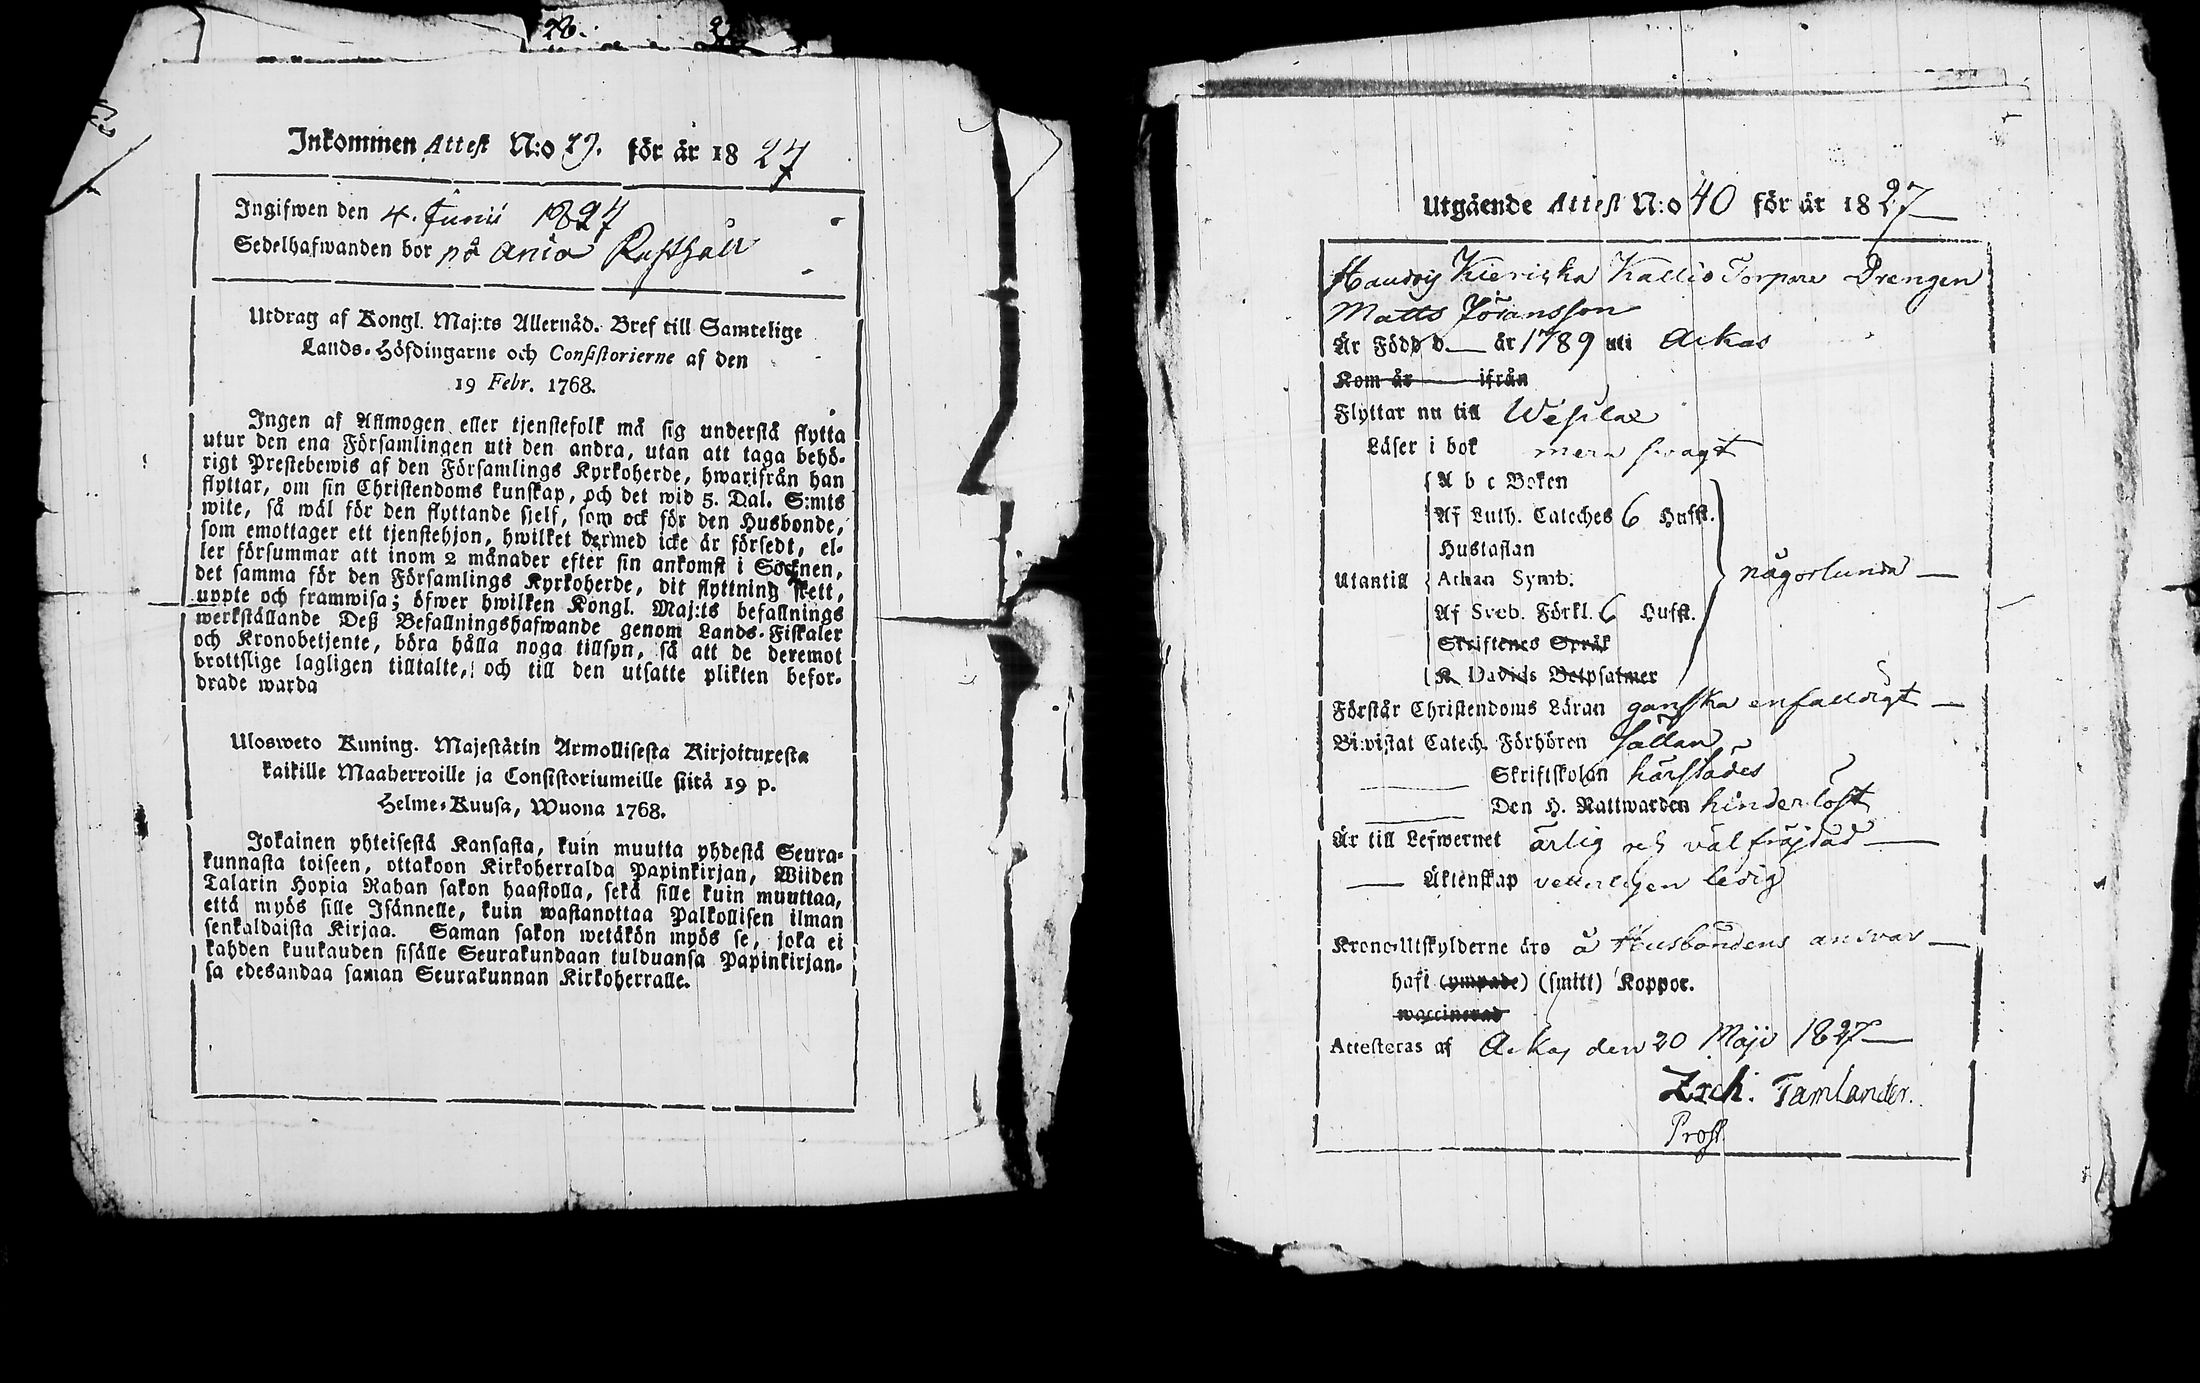 28.
Inkommen Attest N:o 29. för år 1827
Ingifwen den 4. Junii 1827
Sedelhafwanden bor på Ania Rusthåll
Utdrag af Kongl. Maj:ts Allernåd. Bref till Samtelige
Lands-Höfdingarne och Consistorierne af den
19 Febr. 1768.
Ingen af Allmogen eller tjenstefolk må sig understå flytta
utur den ena Församlingen uti den andra, utan att taga behö-
rigt Prestebewis af den Församlings Kyrkoherde, hwarifrån han
flyttar, om sin Christendoms kunskap, och det wid 5. Dal. S:mts
wite, så wäl för den flyttande sjelf, som ock för den Husbonde,
som emottager ett tjenstehjon, hwilket dermed icke är försedt, el-
ler försummar att inom 2 månader efter sin ankomst i Socknen,
det samma för den Församlings Kyrkoherde, dit flyttning skett,
uppte och framwisa; öfwer hwilken Kongl. Maj:ts befallnings
werkställande Deß Befallningshafwande genom Lands-Fiskaler
och Kronobetjente, böra hålla noga tillsyn, så att de deremot
brottslige lagligen tilltalte, och till den utsatte plikten befor-
drade warda
Ulosweto Kuning. Majestätin Armollisesta Kirjoituxesta
kaikille Maaherroille ja Consistoriumeille siitä 19 p.
Helme-Kuusa, Wuona 1768.
Jokainen yhteisestä Kansasta, kuin muutta yhdestä Seura-
kunnasta toiseen, ottakoon Kirkoherralda Papinkirjan, Wiiden
Talarin Hopia Rahan sakon haastolla, sekä sille kuin muuttaa,
että myös sille Isännelle, kuin wastanottaa Palkollisen ilman
senkaldaista Kirjaa. Saman sakon wetäkön myös se, joka ei
kahden kuukauden sisälle Seurakundaan tulduansa Papinkirjan-
sa edesandaa saman Seurakunnan Kirkoherralle.
Utgående Attest N:o 40 för år 1827
Kallio Torpare Drengen
Matts Jöransson
Är Född d år 1789 uti Ackas
Kom år ifrån
Flyttar nu till Wesilax
Läser i bok mera swagt
A b c Boken
Af Luth. Cateches 6 Hufst.
Hustaflan
Utantill Athan Symb. någorlunda
Af Sveb. Förkl. 6 Hufst.
Skriftenes Språk
K. Davids Botpsalmer
Förstår Christendoms Läran ganska enfaldigt
Bivistat Catech. Förhören sällan
Skriftskolan härstädes
Den H. Nattwarden hinderlöst
Är till Lefwernet ärlig och väl fräjdad
Äktenskap vetterligen ledig
Krono-Utskylderne äro å Husbondens ansvar
haft (ympade) (smitt) Koppor.
waccinerad
Attesteras af Ackas den 20 Maji 1827
Zach. Tamlander.
Prost